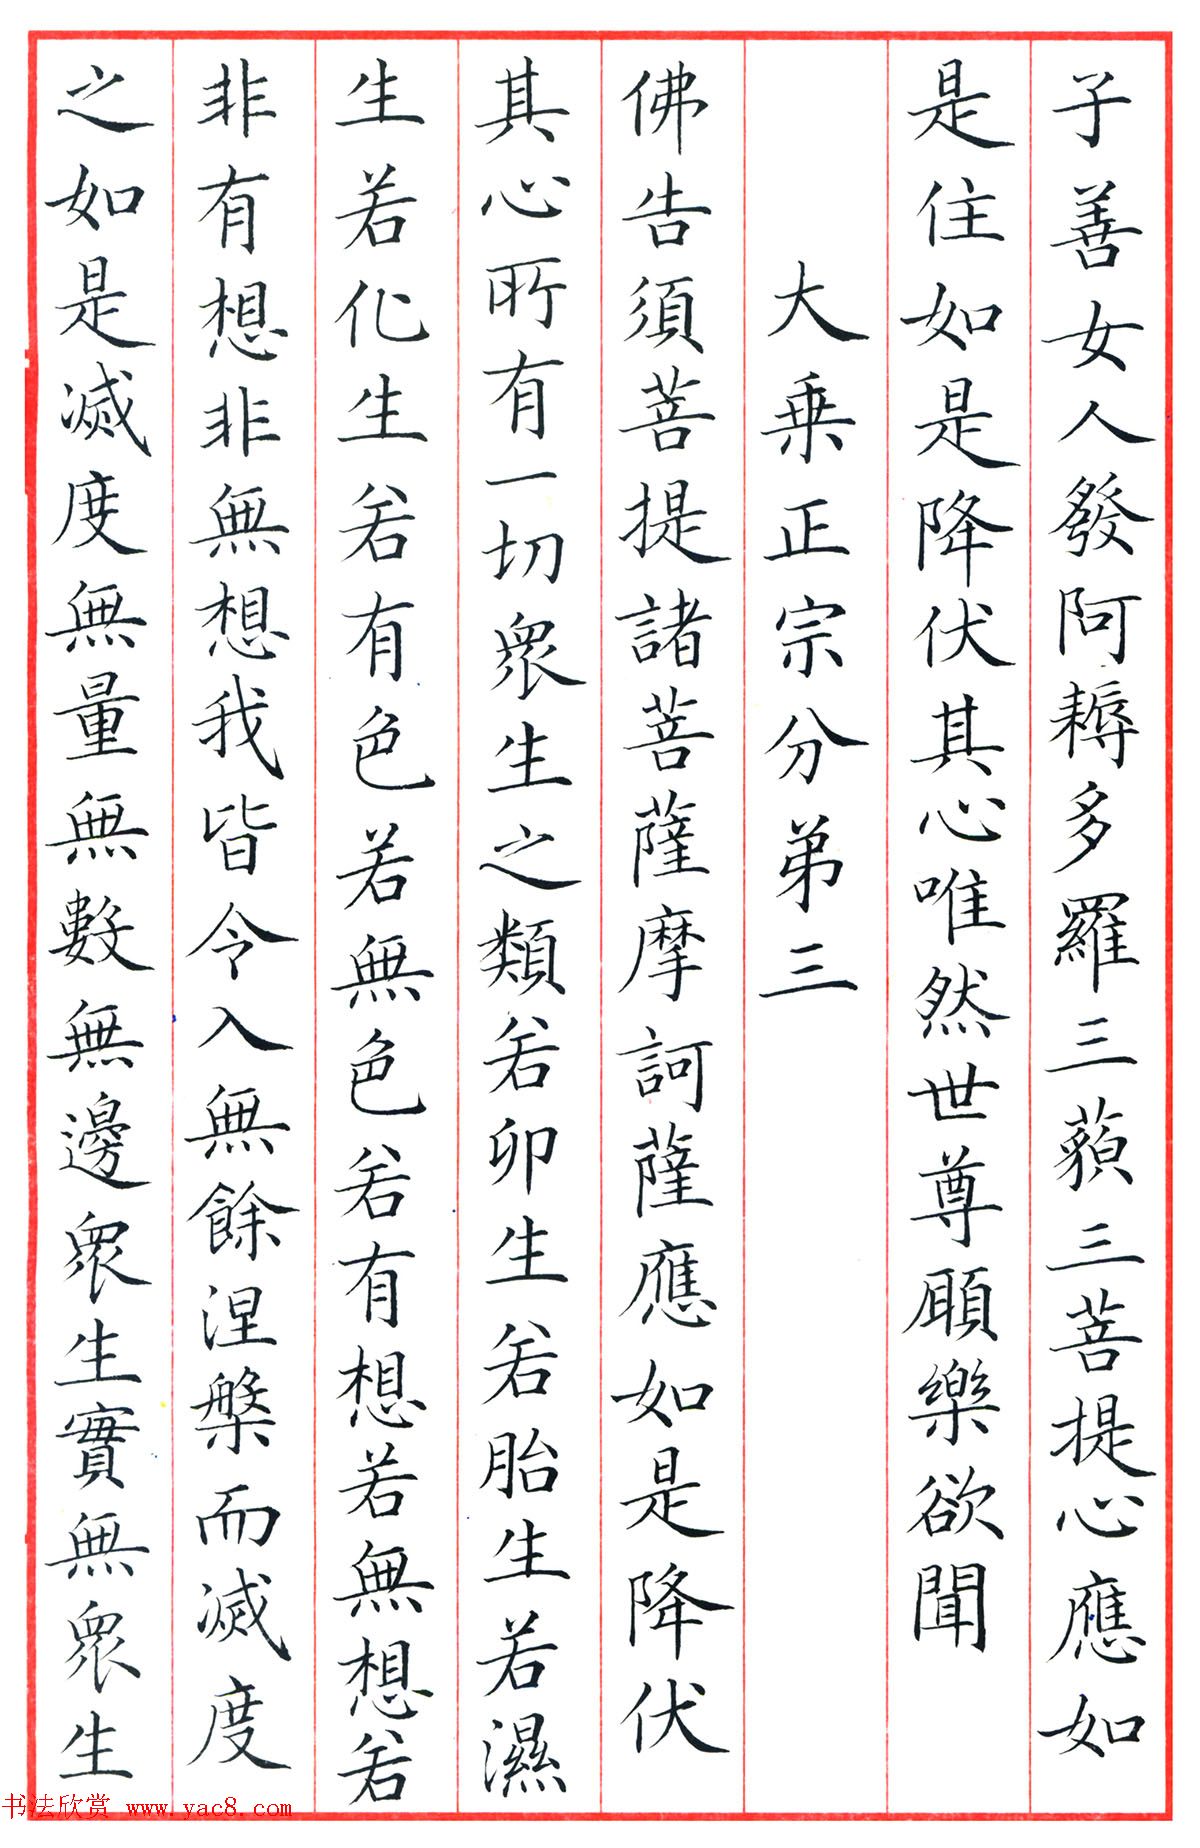 子善女人發阿耨多羅三藐三菩提心應如
是住如是降伏其心唯然世尊願樂欲聞
大乗正宗分弟三
佛告須菩提諸菩薩摩訶薩應如是降伏
其心所有一切衆生之類若卵生若胎生若濕
生若化生若有色若無色若有想若無想若
非有想非無想我皆令入無餘涅槃而滅度
之如是滅度無量無數無邊衆生實無衆生
书法欣赏 www.yac8.com